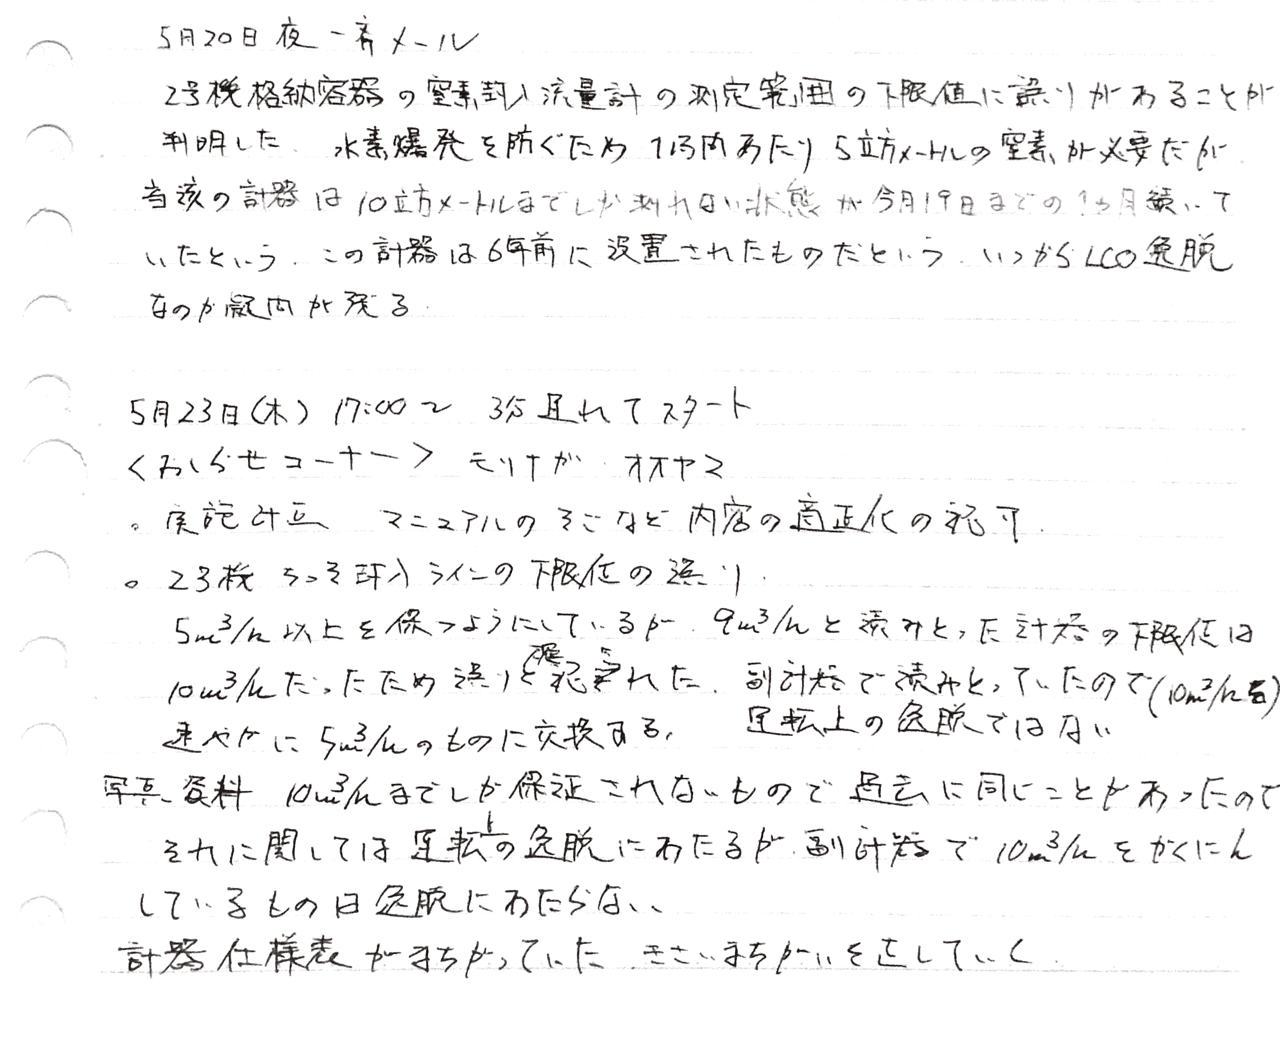 5月20日夜 一斉メール
2号機格納容器の窒素封入流量計の測定範囲の下限値に誤りがあることが
判明した。水素爆発を防ぐため1時間あたり5立方メートルの窒素が必要だが
当該の計器は10立方メートルまでしか測れない状態が今月19日までの1ヵ月続いて
いたという。この計器は6年前に設置されたものだという。いつからLCO逸脱
なのか疑問が残る。
5月23日(木) 17:00〜 3分遅れてスタート
<おしらせコーナー> モリナガ・オオヤマ
。実施計画 マニュアルのそごなど内容の適正化の認可.
。2号機 ちっそ封入ラインの下限値の誤り.
5m³/h以上を保つようにしているが、9m³/hと読みとった計器の下限値は
10m³/hだったため誤りと確認された. 副計器で読みとっていたので(10m³/h台)
速やかに5m³/hのものに交換する. 運転上の逸脱ではない
写真、資料 10m³/hまでしか保証されないもので過去に同じことがあったので
それに関しては運転上の逸脱にあたるが.副計器で10m³/hをかくにん
しているものは逸脱にあたらない、
計器仕様表がまちがっていた. きさいまちがいを正していく.